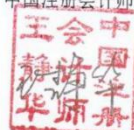 中国注册会计师
中国注册
会计师
王静华